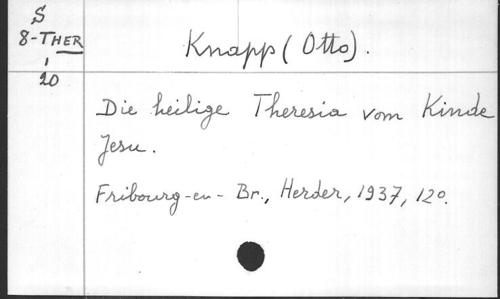 S
8-THER
1
20
Knapp (Otto).
Die heilige Theresia vom Kinde
Jesu.
Fribourg-en-Br., Herder, 1937, 12o.